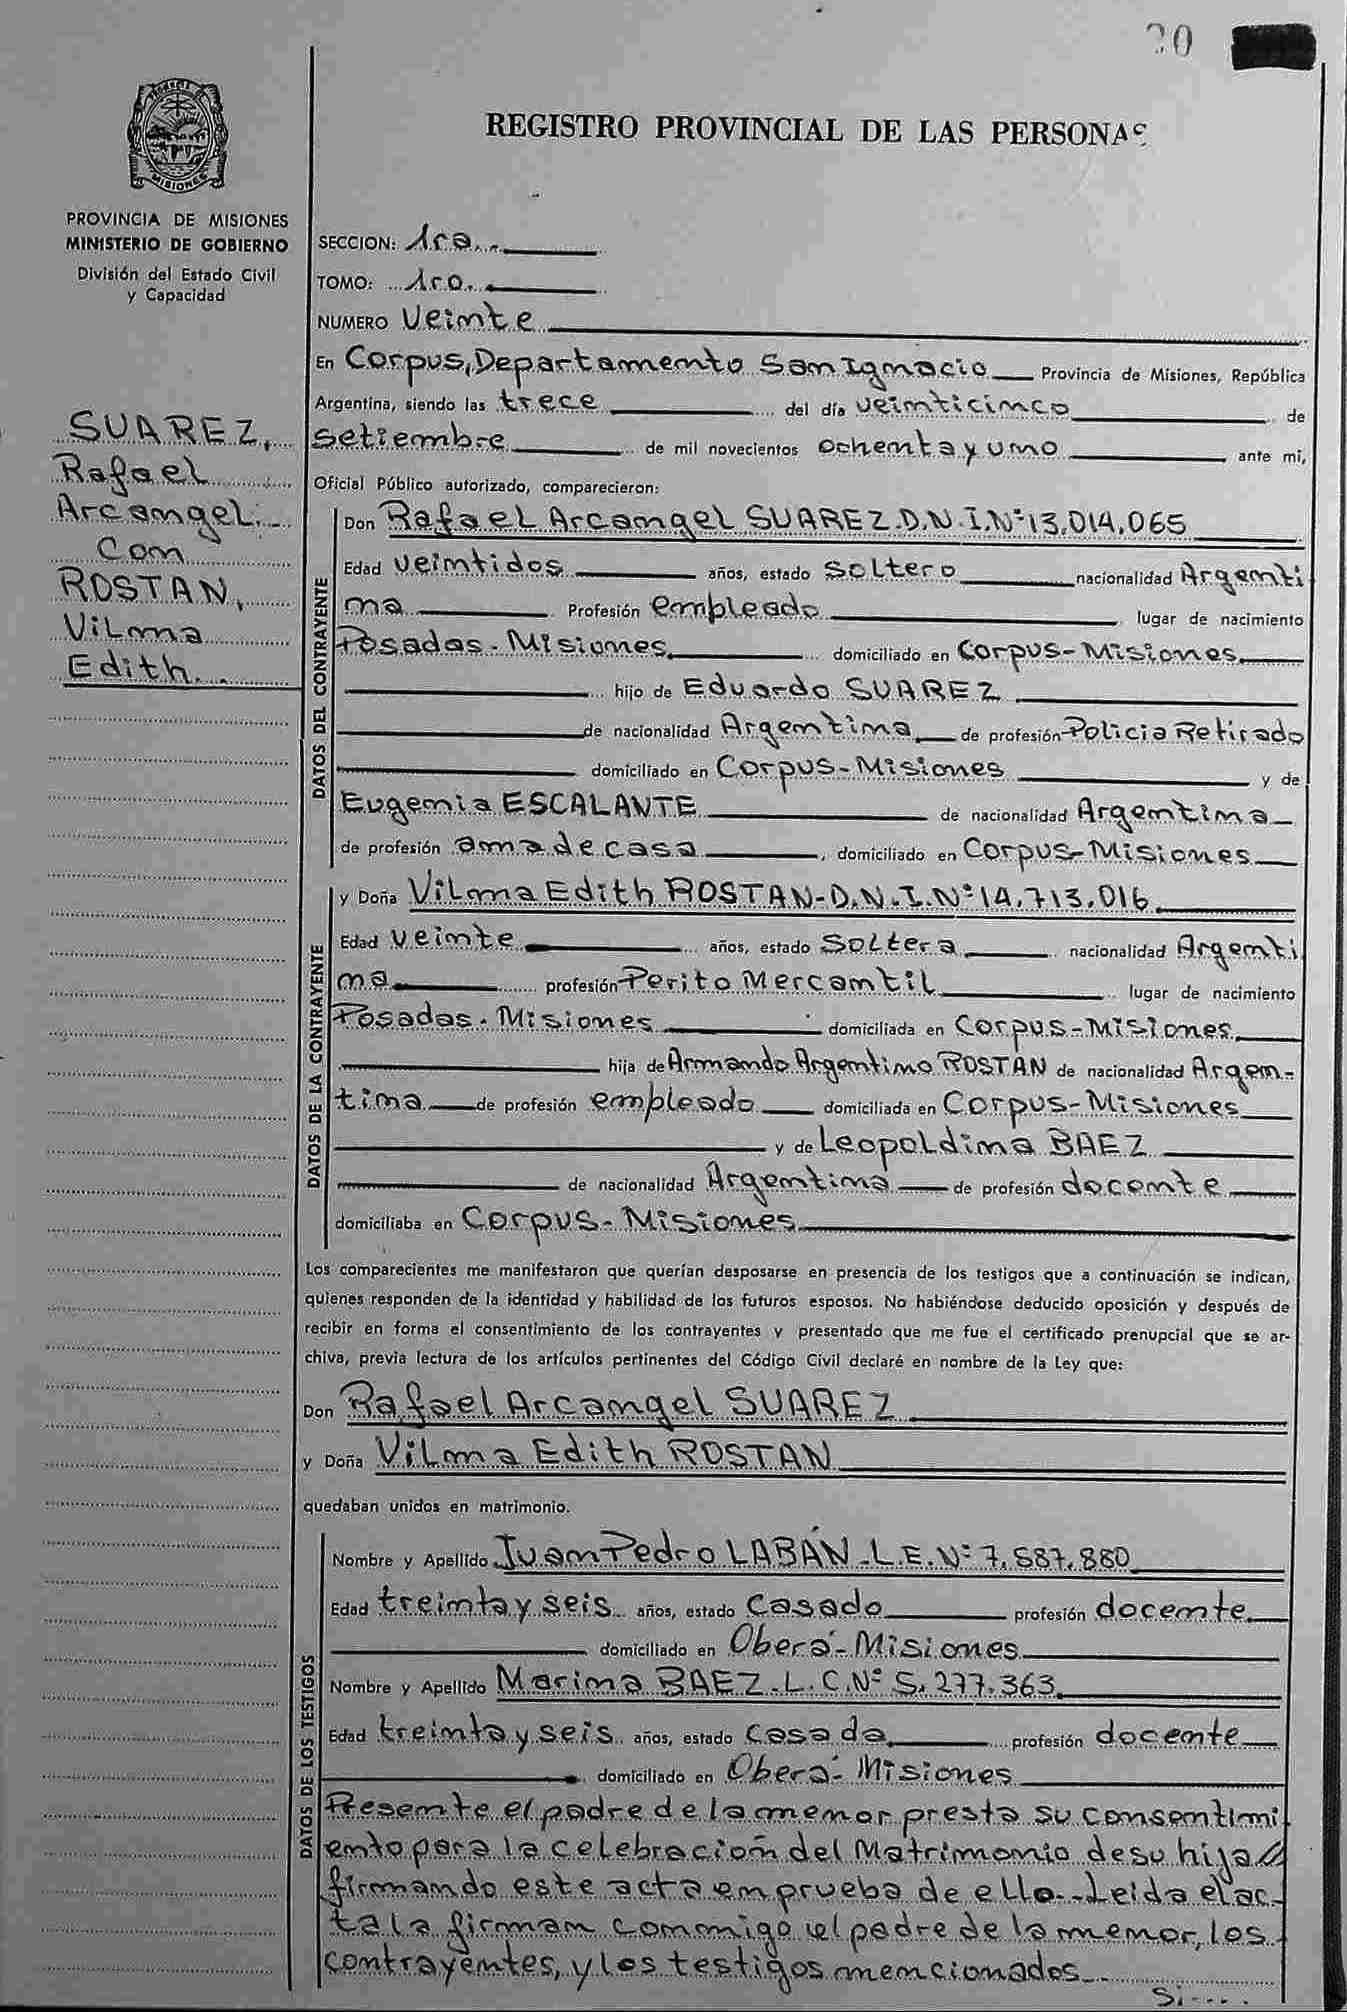 20
REGISTRO PROVINCIAL DE LAS PERSONAS
MISIONES
PROVINCIA DE MISIONES
MINISTERIO DE GOBIERNO
División del Estado Civil
y Capacidad
SUAREZ,
Rafael
Arcangel
Con
ROSTAN,
Vilma
Edith
SECCION: 1ra.
TOMO: 1ro.
NUMERO Veinte
En Corpus, Departamento San Ignacio Provincia de Misiones, República
Argentina, siendo las trece del día veinticinco de
setiembre de mil novecientos ochenta y uno ante mi,
Oficial Público autorizado, comparecieron:
DATOS DEL CONTRAYENTE
Don Rafael Arcangel SUAREZ. D.N.I.Nº 13.014.065
Edad veintidos años, estado soltero nacionalidad Argenti
na Profesión empleado lugar de nacimiento
Posadas - Misiones domiciliado en Corpus - Misiones
hijo de Eduardo SUAREZ
de nacionalidad Argentina de profesión Policia Retirado
domiciliado en Corpus - Misiones y de
Eugenia ESCALANTE de nacionalidad Argentina
de profesión ama de casa, domiciliado en Corpus - Misiones
DATOS DE LA CONTRAYENTE
y Doña Vilma Edith ROSTAN - D.N.I.Nº 14.713.016
Edad veinte años, estado soltera nacionalidad Argenti
na profesión Perito Mercantil lugar de nacimiento
Posadas - Misiones domiciliada en Corpus - Misiones
hija de Armando Argentino ROSTAN de nacionalidad Argen-
tina de profesión empleado domiciliada en Corpus - Misiones
y de Leopoldina BAEZ
de nacionalidad Argentina de profesión docente
domiciliaba en Corpus - Misiones
Los comparecientes me manifestaron que querían desposarse en presencia de los testigos que a continuación se indican,
quienes responden de la identidad y habilidad de los futuros esposos. No habiéndose deducido oposición y después de
recibir en forma el consentimiento de los contrayentes y presentado que me fue el certificado prenupcial que se ar-
chiva, previa lectura de los artículos pertinentes del Código Civil declaré en nombre de la Ley que:
Don Rafael Arcangel SUAREZ
y Doña Vilma Edith ROSTAN
quedaban unidos en matrimonio.
DATOS DE LOS TESTIGOS
Nombre y Apellido Juan Pedro LABÁN - L.E.Nº 7.587.880
Edad treinta y seis años, estado casado profesión docente
domiciliado en Oberá - Misiones
Nombre y Apellido Marina BAEZ. L.C.Nº 5.277.363
Edad treinta y seis años, estado casada profesión docente
domiciliado en Oberá - Misiones
Presente el padre de la menor presta su consentimi
ento para la celebración del Matrimonio de su hija
firmando este acta en prueba de ello. - Leida el ac-
ta la firman conmigo el padre de la menor, los
contrayentes, y los testigos mencionados
Si----